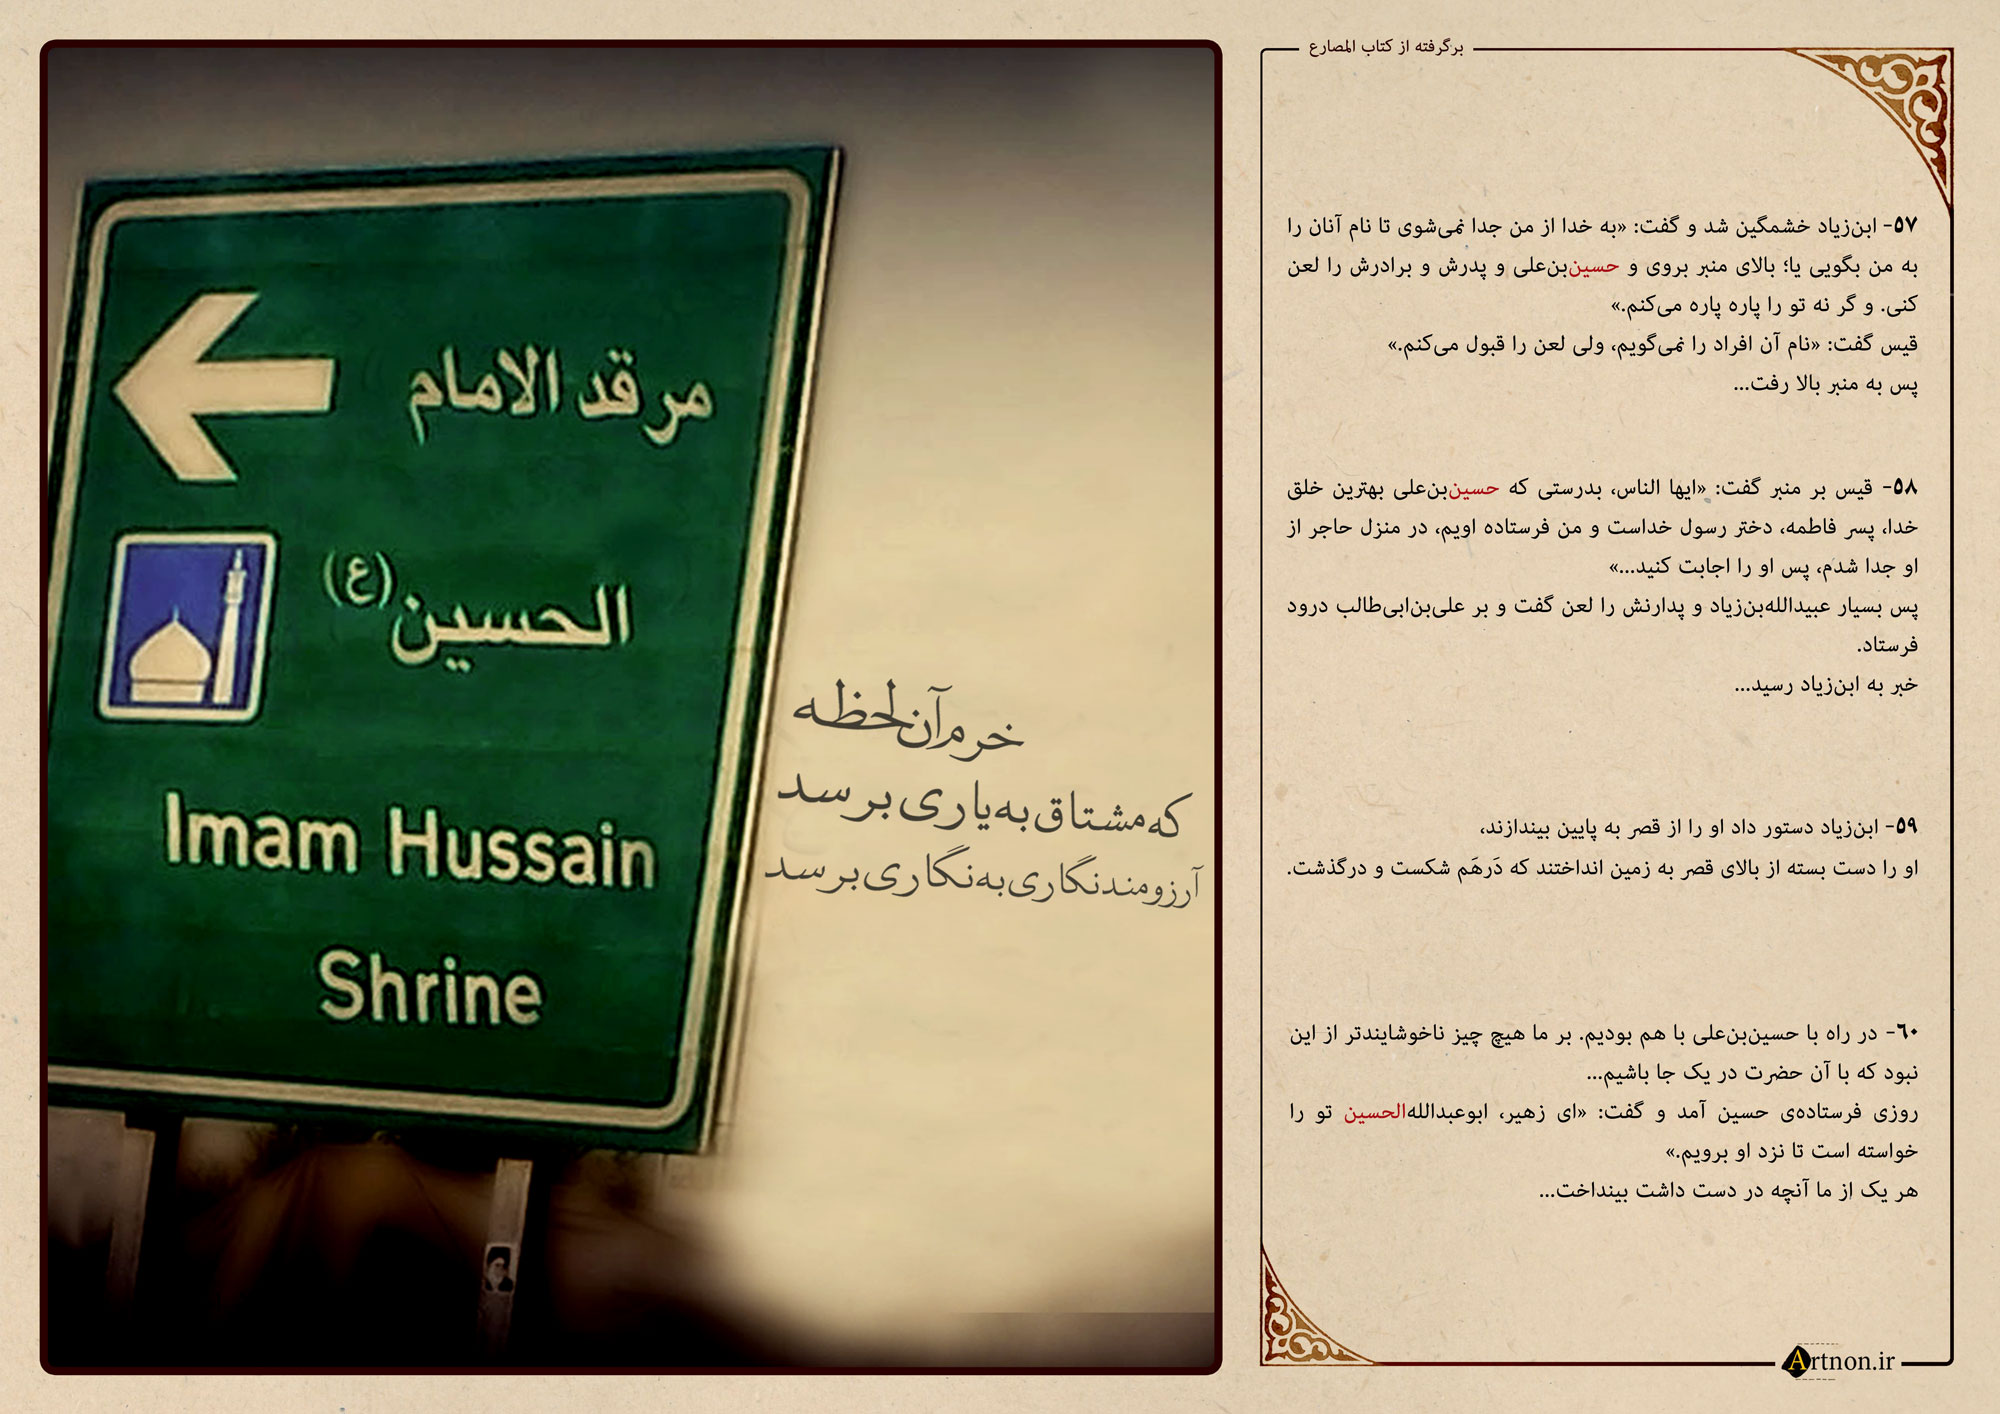 برگرفته از کتاب المصارع
۵۷- ابن‌زیاد خشمگین شد و گفت: «به خدا از من جدا نمی‌شوی تا نام آنان را
به من بگویی یا؛ بالای منبر بروی و حسین‌بن‌علی و پدرش و برادرش را لعن
کنی. و گر نه تو را پاره پاره می‌کنم.»
قیس گفت: «نام آن افراد را نمی‌گویم، ولی لعن را قبول می‌کنم.»
پس به منبر بالا رفت...
۵۸- قیس بر منبر گفت: «ایها الناس، بدرستی که حسین‌بن‌علی بهترین خلق
خدا، پسر فاطمه، دختر رسول خداست و من فرستاده اویم، در منزل حاجر از
او جدا شدم، پس او را اجابت کنید...»
پس بسیار عبیدالله‌بن‌زیاد و پدارنش را لعن گفت و بر علی‌بن‌ابی‌طالب درود
فرستاد.
خبر به ابن‌زیاد رسید...
۵۹- ابن‌زیاد دستور داد او را از قصر به پایین بیندازند،
او را دست بسته از بالای قصر به زمین انداختند که دَرهَم شکست و درگذشت.
۶۰- در راه با حسین‌بن‌علی با هم بودیم. بر ما هیچ چیز ناخوشایندتر از این
نبود که با آن حضرت در یک جا باشیم...
روزی فرستاده‌ی حسین آمد و گفت: «ای زهیر، ابوعبدالله‌الحسین تو را
خواسته است تا نزد او برویم.»
هر یک از ما آنچه در دست داشت بینداخت...
Artnon.ir
مرقد الامام
الحسین (ع)
Imam Hussain
Shrine
خرم آن لحظه
که مشتاق به یاری برسد
آرزومند نگاری به نگاری برسد